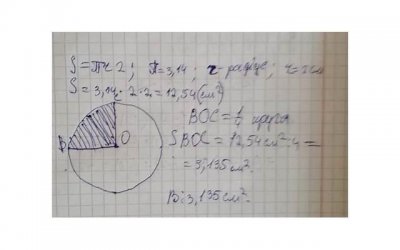 S = πr2; π = 3,14; r - радіус; r = 2 см
S = 3,14 · 2 · 2 = 12,54 (см²)
BOC = 1/4 круга
B O
S BOC = 12,54 см² : 4 =
= 3,135 см².
В: 3,135 см².